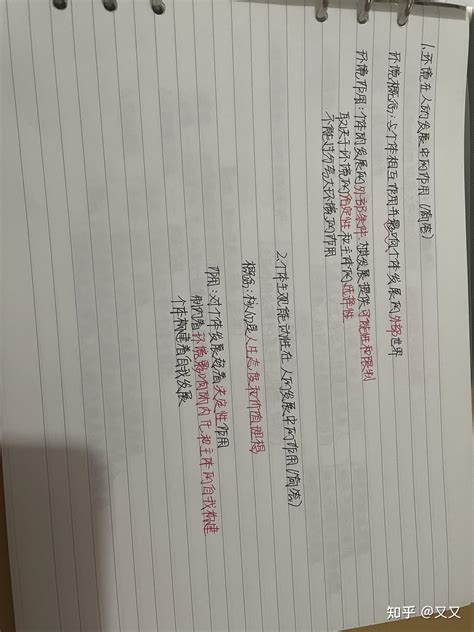 1.环境在人的发展中的作用(简答)
环境概念:与个体相互作用并影响个体发展的外部世界
环境作用:个体的发展的外部条件,既发展提供可能性和限制
取决于环境的给定性和主体的选择性
不能过分夸大环境的作用
2.个体主观能动性在人的发展中的作用(简答)
概念:核心是人生态度和价值理想
作用:对个体发展起着决定性作用
制约着环境影响的内化和主体的自我构建
个体构建着自我发展
知乎 @又又